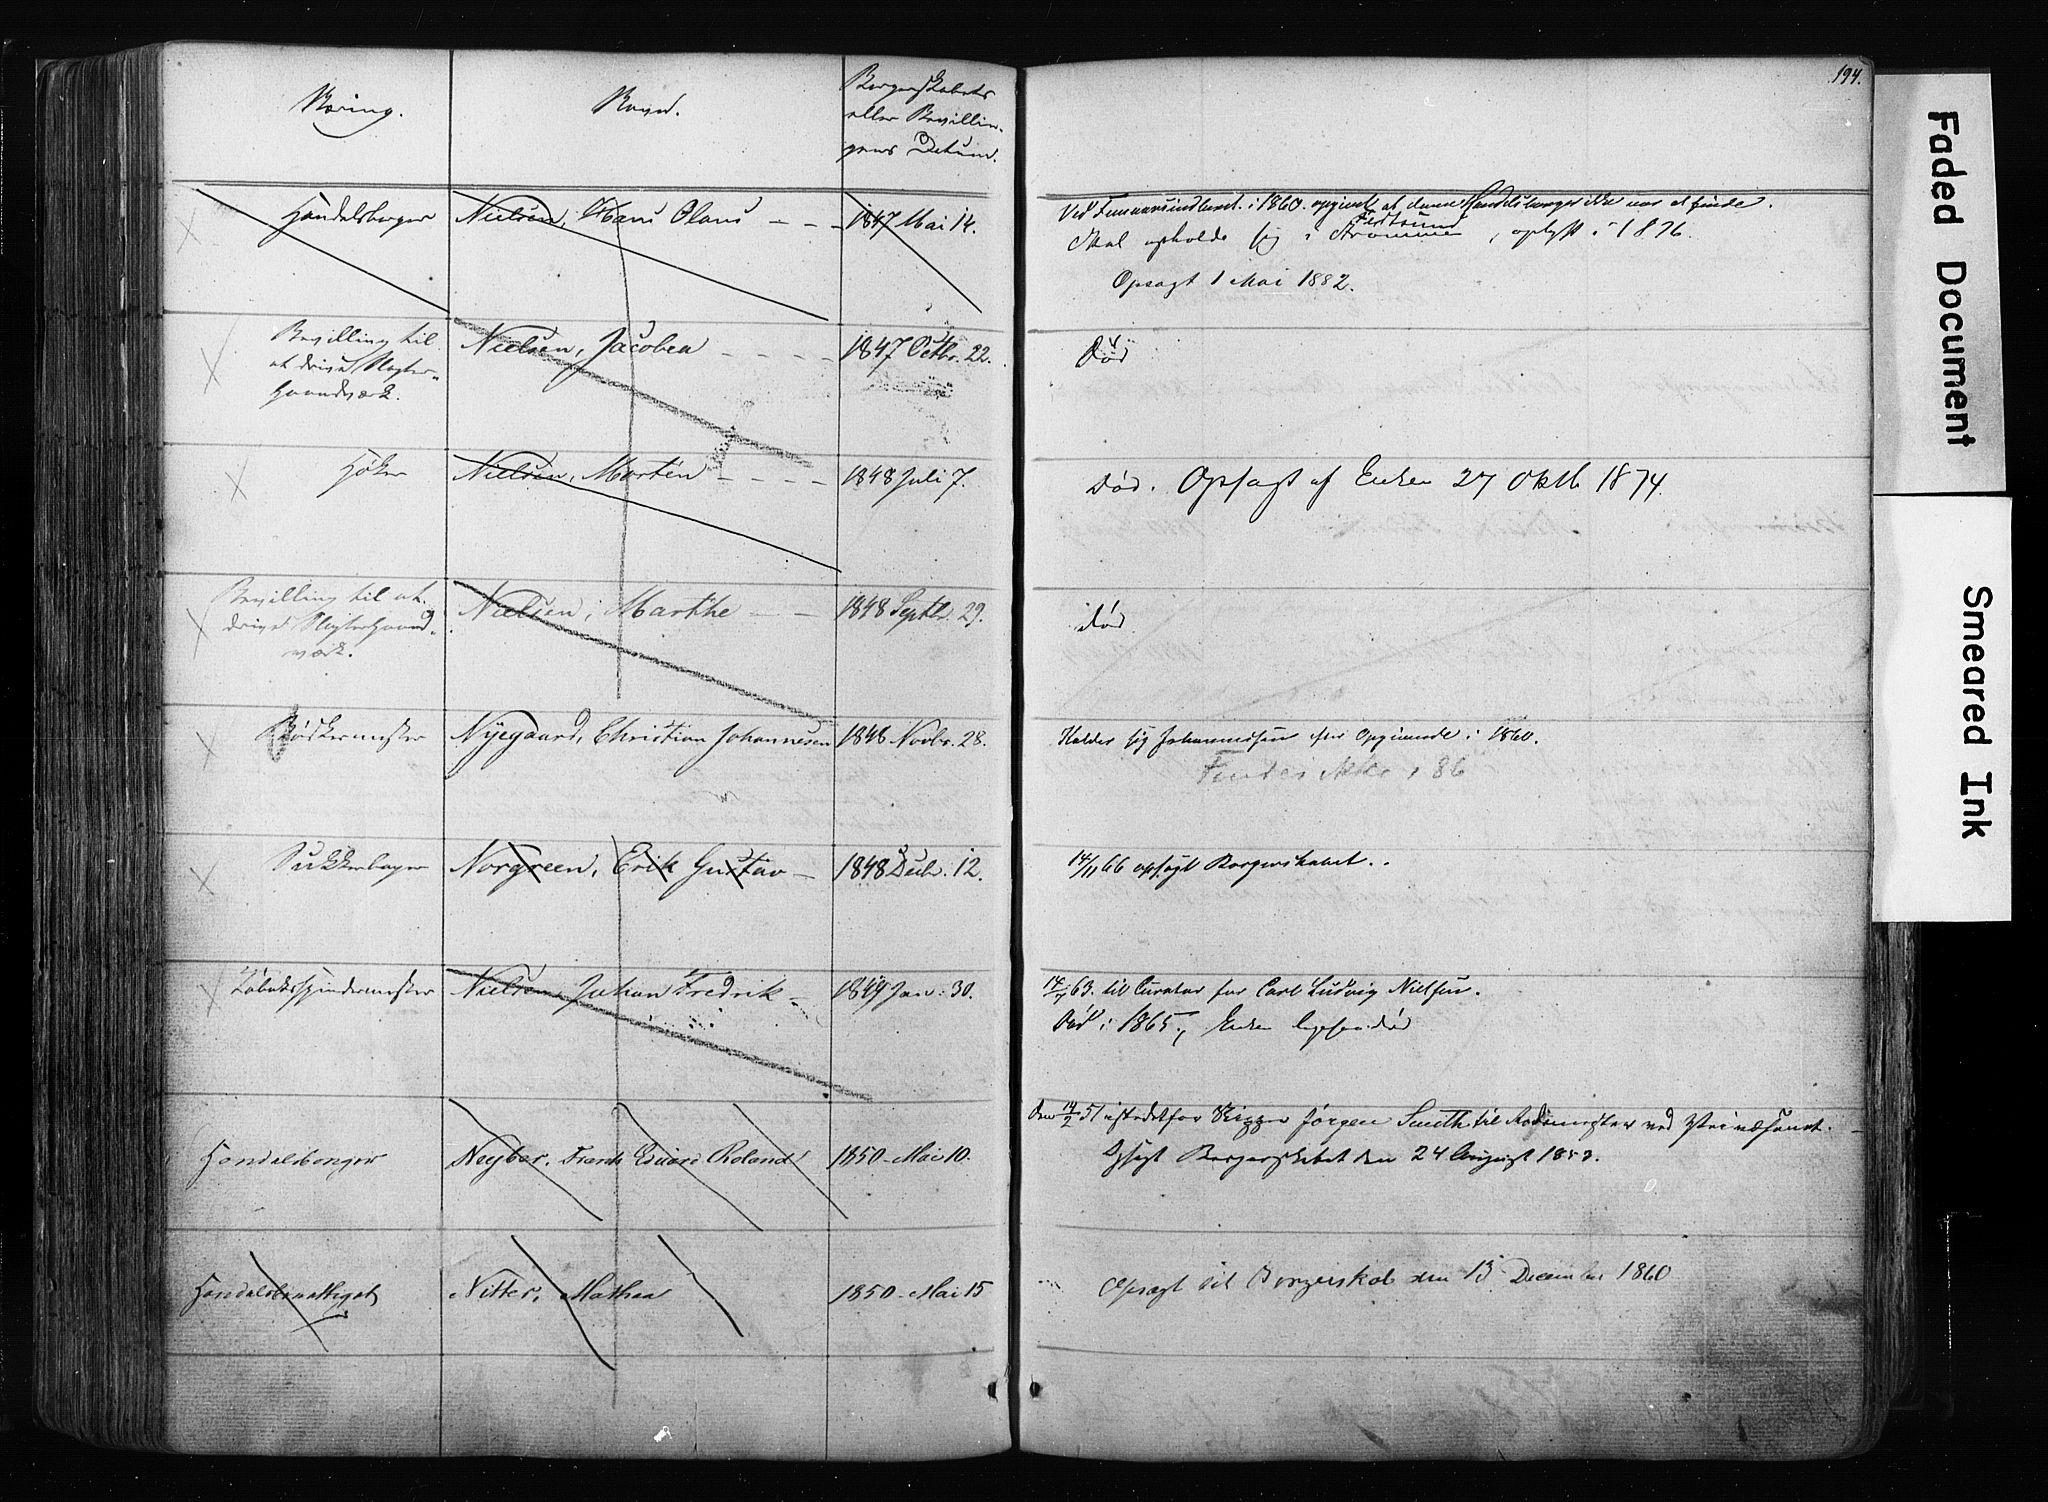 194.
Næring.
Navn.
Borgerskabets
eller Bevillin-
gens Datum.
Handelsborger Nielsen, Hans Olaus - - - 1847 Mai 14.
Ved i 1860 opgivet at denne Handelsborger ikke var at finde.
Fetsund
Skal opholde sig i Strømmen, oplyst i 1876.
Opsagt 1 Mai 1882.
Bevilling til
at drive Slagter-
haandværk.
Nielsen, Jacobea - - - - 1847 Octbr. 22.
Død
Høker Nielsen, Morten - - - - 1848 Juli 7.
Død. Opsagt af Enken 27 Oktb 1874.
Bevilling til at
drive Slagterhaand-
værk.
Nielsen, Marthe - - 1848 Septbr. 29.
død.
Bødkermester Nyegaard, Christian Johannesen 1848 Novbr. 28.
Kalder sig Johannessen efter Opgivende i 1860.
Findes ikke i 86
Sukkerbager Norgreen, Erik Gustav - 1848 Decbr. 12.
14/11 66 opsagt Borgerskabet.
Tobaksspindermester Nielsen, Johan Fredrik - 1849 Jan: 30.
63. til Curator for Carl Ludvig Nielsen.
Død i 1865, Enken ligesaa død
Handelsborger Neyber, Frantz Eduard Roland 1850 - Mai 10.
Den 14/2 51 istedetfor Jørgen Smith til Rodemester ved
Opsagt Borgerskabet den 24 August 1853.
Handelsberettiget Nitter, Mathea 1850 - Mai 15
Opsagt sit Borgerskab den 13 December 1860
Faded Document
Smeared Ink